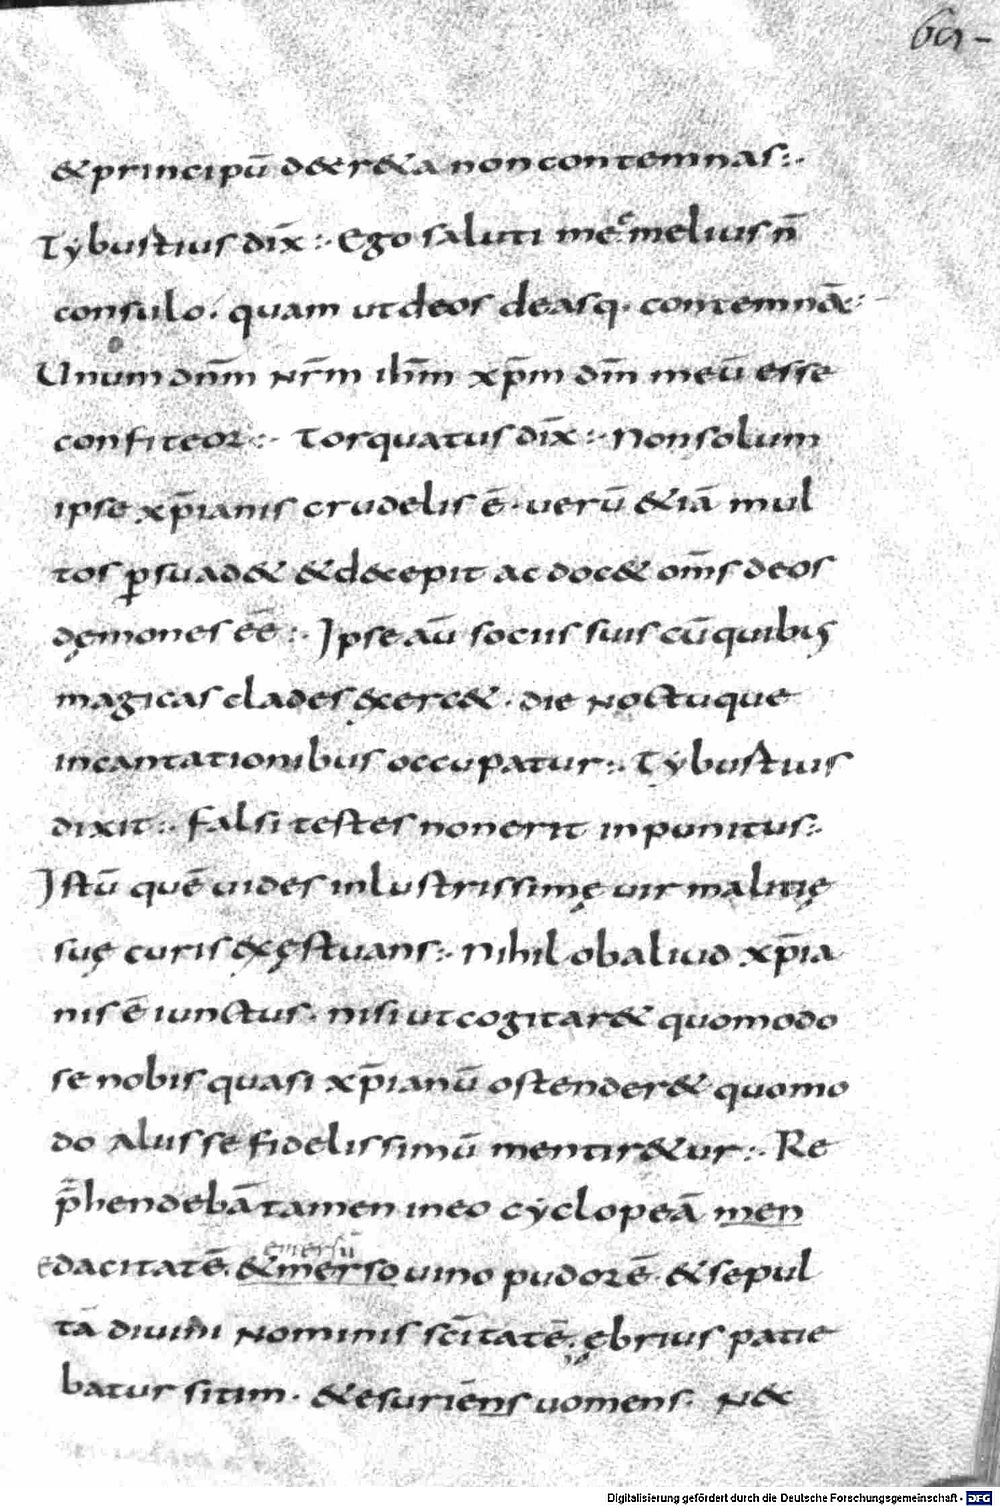 69-
& principū d&er&a non contemnas:.
Tẏbustius dix̄:. Ego saluti meę melius n̄
consulo. quam ut deos deasq. contemnā:
Unum dn̄m nr̄m ihm̄ xp̄m dm̄ meū esse
confiteor:. Torquatus dix̄:. Non solum
ipse xp̄ianis crudelis ē. uerū &iā mul
tos ꝑsuad& & decepit ac doc& om̄s deos
dęmones eē:. Ipse aū sociis suis cū quibus
magicas clades &erc&. die noctuque
incantationibus occupatur:. Tẏbustius
dixit:. Falsi testes non erit inpunitus:.
Istū quē uides inlustrissimę uir malitię
suę curis exęstuans:. Nihil ob aliud xp̄ia
nis ē iunctus. nisi ut cogitar& quomodo
se nobis quasi xp̄ianū ostender& quomo
do aliis se fidelissimū mentir&ur:. Re
p̄hendebā tamen in eo cẏclopeā men
edacitatē. emersū
& merso uino pudorē. & sepul
tā diuini nominis sc̄itatē. ębrius patie
batur sitim. & esuriēns uomens. N&
Digitalisierung gefördert durch die Deutsche Forschungsgemeinschaft - DFG